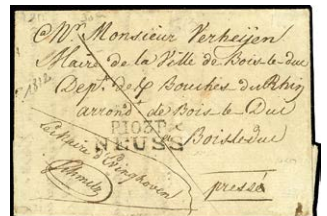 Mr Monsieur Verheijen
Maire de la Ville de Bois-le-duc
Dept des Bouches du Rhin
arrondt de Bois-le Duc
P103P
NEUSS
Boisleduc
Le Maire d'Evinghoven
Schmitz
pressé
1812